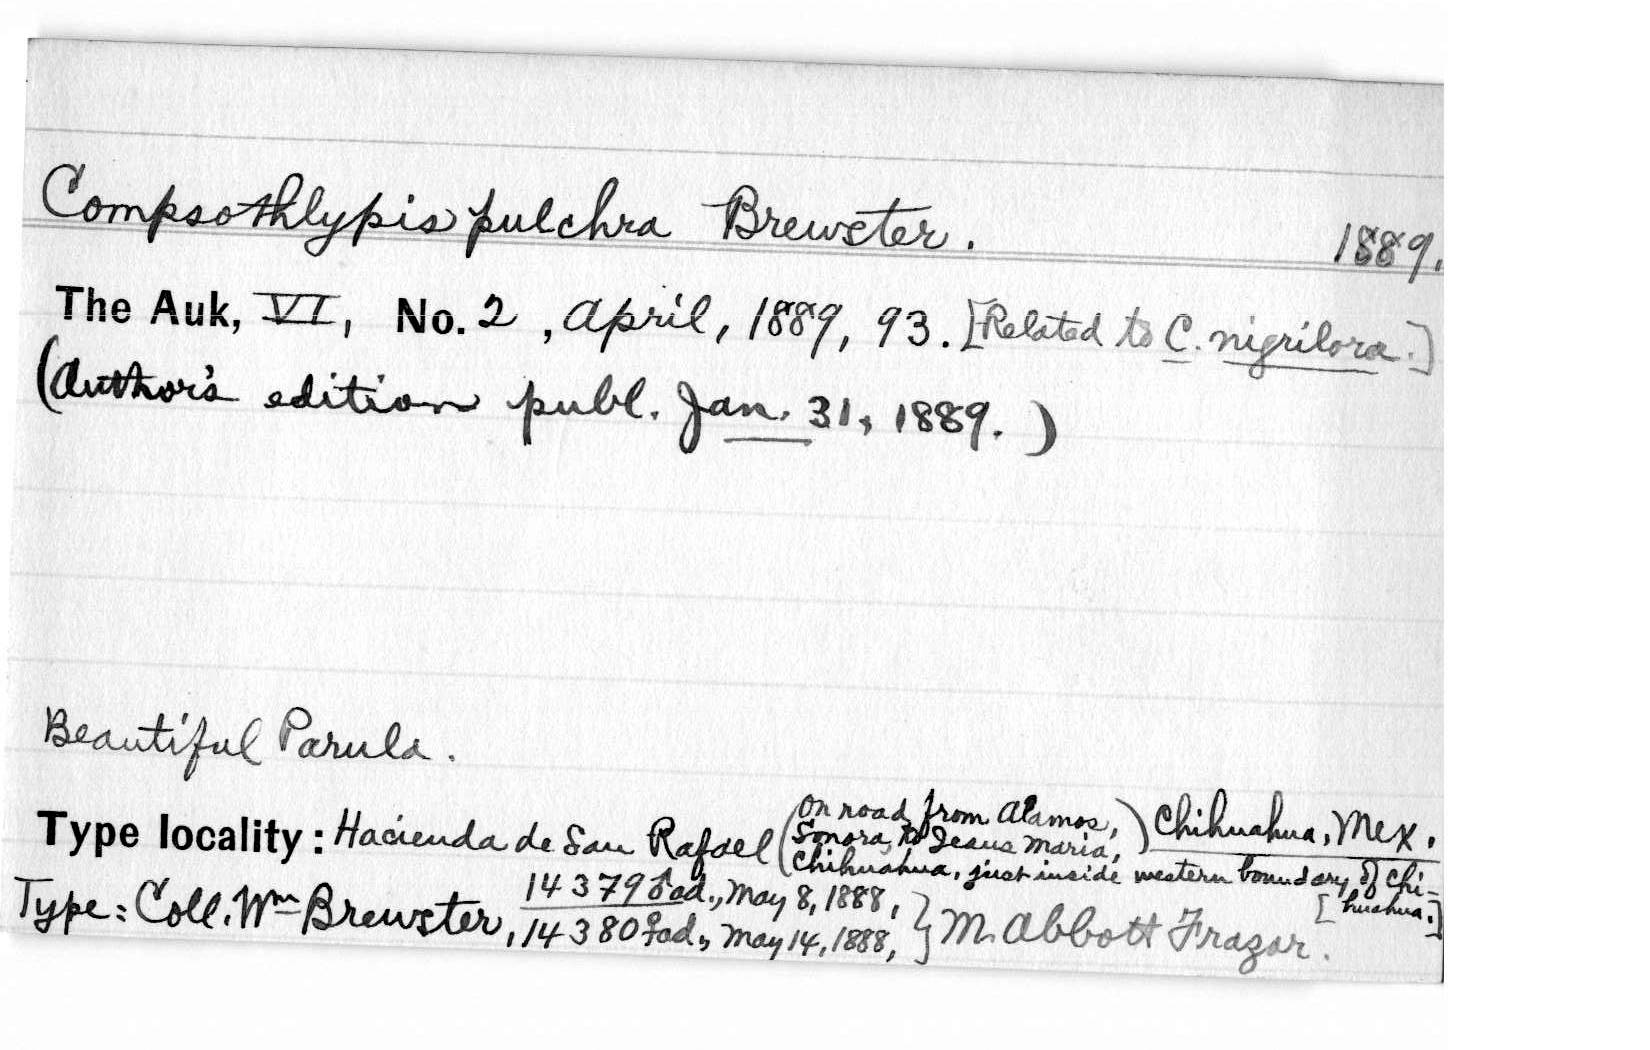 Compsothlypis pulchra Brewster.
1889.
The Auk, VI, No. 2, April, 1889, 93. [Related to C. nigrilora.]
(Author's edition publ. Jan. 31, 1889.)
Beautiful Parula.
Type locality: Hacienda de San Rafael (On road from Alamos, Sonora, to Jesus Maria,) Chihuahua, Mex.
Chihuahua, just inside western boundary of Chi-
[huahua.]
Type: Coll. Wm Brewster, 14379 ♂ ad., May 8, 1888,
14380 ♀ ad., May 14, 1888, } M. Abbott Frazar.